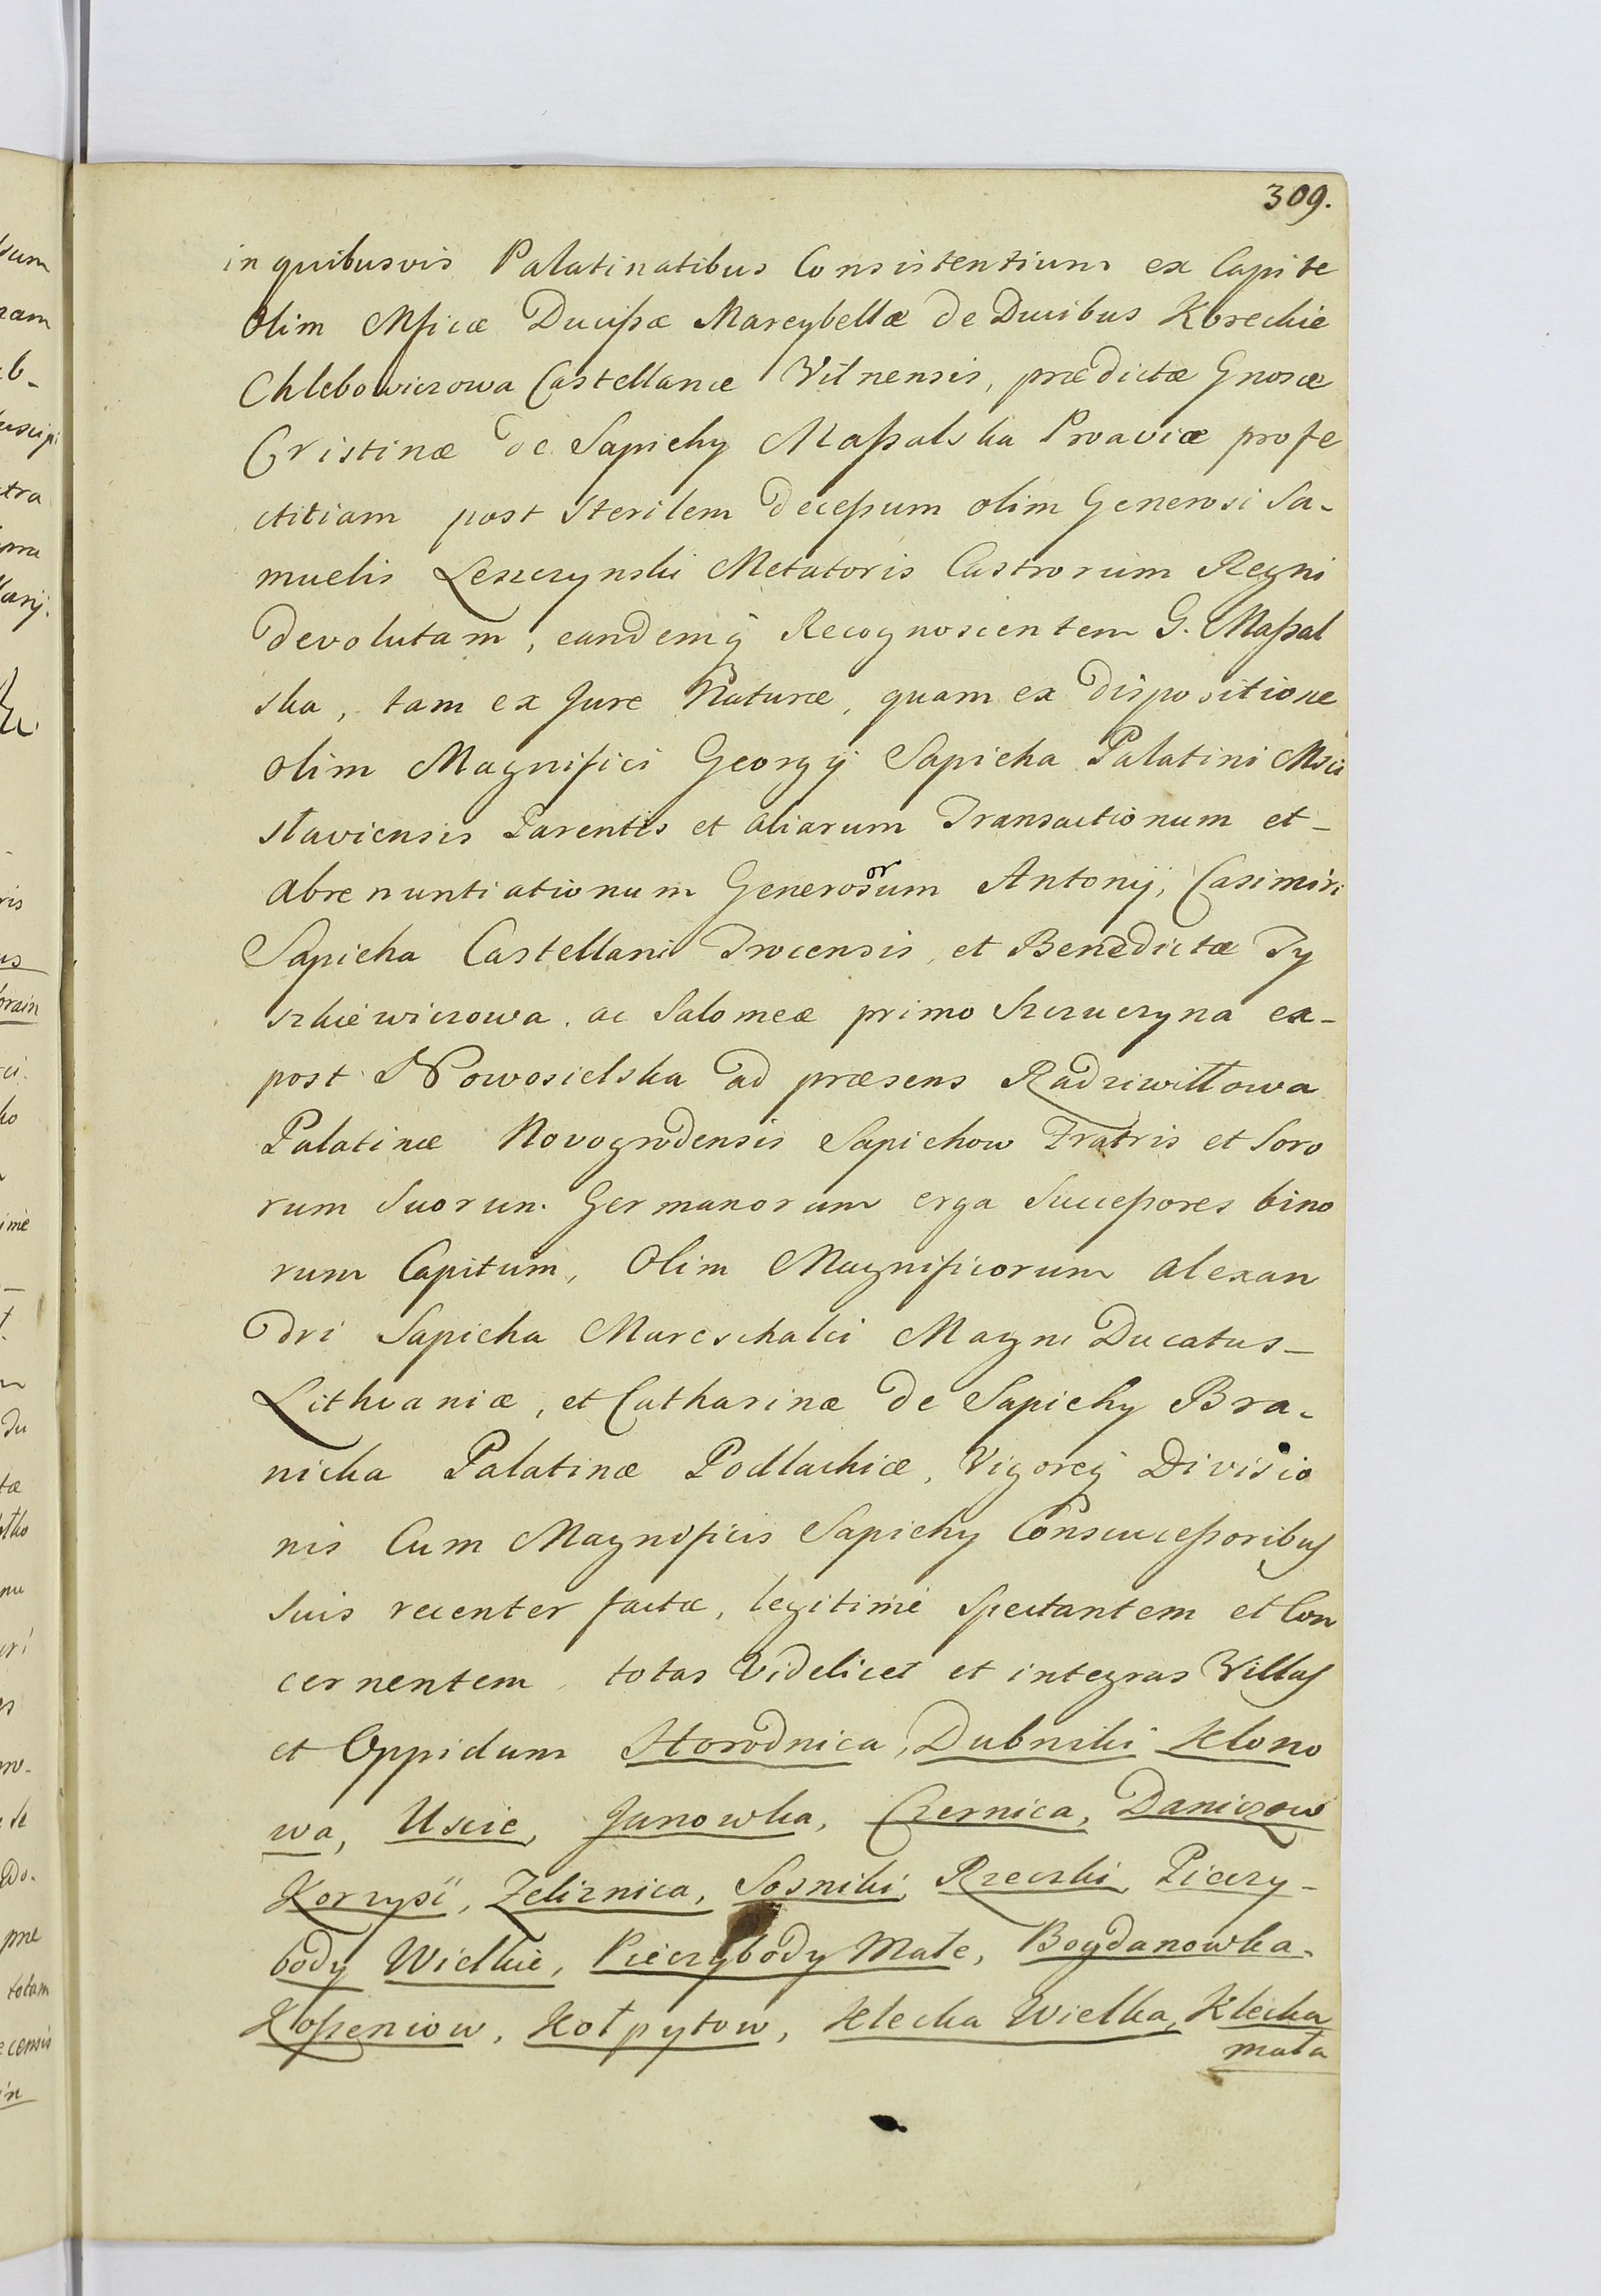 309.
in quibusvis Palatinatibus Consistentium ex Capite
Olim Mficæ Ducißæ Marcybellæ de Ducibus Koreckie
Chlebowiczowa Castellanæ Vilnensis, prædictæ Gnosæ
Cristinæ de Sapiehy Maßalska Proaviæ profe
ctitiam post sterilem deceßum olim Generosi Sa-
muelis Leszczynski Metatoris Castrorum Regni
devolutam, eandemq Recognoscentem G. Maßal
ska, tam ex Jure Naturæ, quam ex dispositione
olim Magnifici Georgij Sapieha Palatini Mści
slaviensis Parentis et aliarum Transactionum et-
abrenuntiationum Generosorum Antonij, Casimiri
Sapieha Castellani Trocensis, et Benedictæ Ty
szkiewiczowa, ac Salomeæ primo Szczuczyna ex-
post Nowosielska ad præsens Radziwiłłowa
Palatinæ Novogrodensis Sapiehow Fratris et Soro
rum Suorum Germanorum erga Succeßores bino
rum Capitum, Olim Magnificorum Alexan
dri Sapieha Mareschalci Magni Ducatus-
Lithvaniæ, et Catharinæ de Sapiehy Bra-
nicka Palatinæ Podlachiæ, Vigoreq Divisio
nis Cum Magnificis Sapiehy Consucceßoribus
suis recenter factæ, legitimè Spectantem et Con
cernentem, totas Videlicet et integras Villas
et Oppidum Horodnica, Dubniki Klono
wa, Uscie, Janowka, Czernica, Daniczow
Korzysć, Zeliznica, Sosniki, Rzeczki, Pieczy-
body Wielkie, Pieczybody Małe, Bogdanowka-
Koßeniow, Hołpytow, Klecka Wielka, Klecka
mała